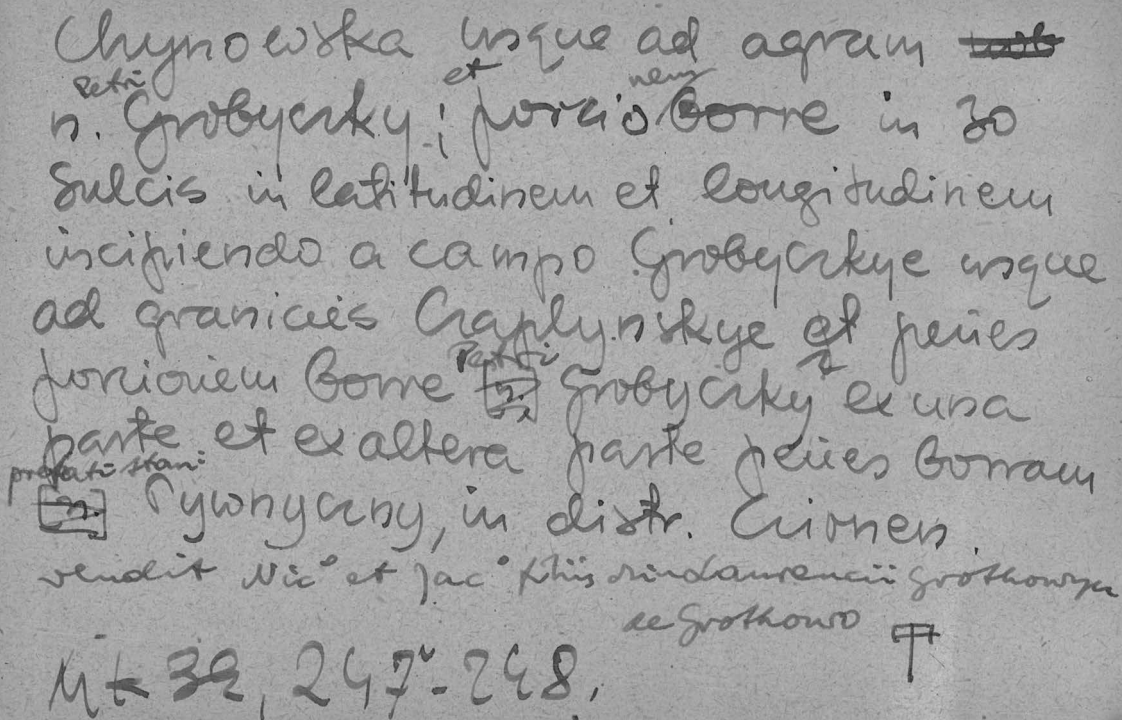 Chynowska usque ad agrum
Petri et nem
n. Grobyczky; porcio Borre in 30
Sulcis in latitudinem et longitudinem
incipiendo a campo Grobyczkye usque
ad granicies Czaplynskye et penes
porcionem Borre Petri Grobyczky ex una
parte et ex altera parte penes Borram
prefati Stani
Pywnyczny, in distr. Czirnen.
vendit Nic° et Jac° filiis Laurencii Grothowym
de Grothowo
MK 32, 247v-248.